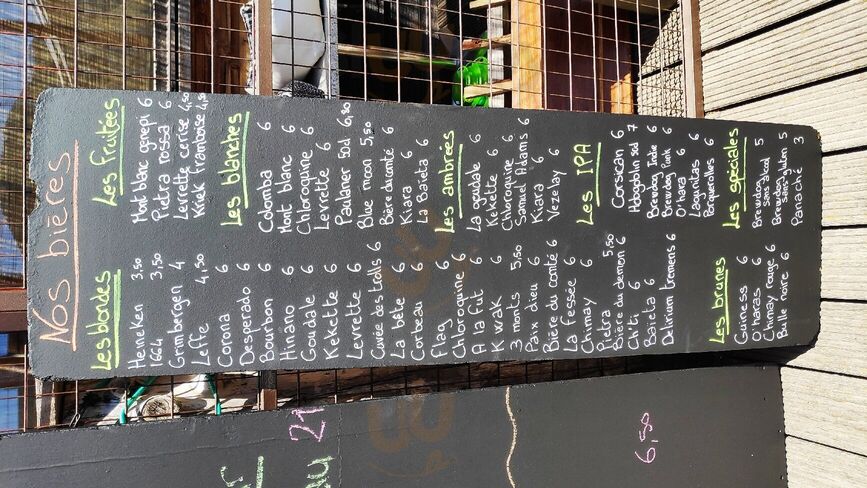 Nos bières
Les blondes
Heineken 3,50
1664 3,50
Grimbergen 4
Leffe 4,50
Corona 6
Desperado 6
Bourbon 6
Hinano 6
Goudale 6
Kekette 6
Levrette 6
Cuvée des trolls 6
La bête 6
Corbeau 6
Flag 6
Chloroquine 6
A la fut 6
Kwak 6
3 monts 5,50
Paix dieu 6
Bière du comté 6
La fessée 6
Chimay 6
Pietra 5,50
Bière du demon 6
Ch'ti 6
Baieta 6
Delirium tremens 6
Les brunes
Guiness 6
O'haras 6
Chimay rouge 6
Bulle noire 6
Les fruitées
Mont blanc genepi 6
Pietra rossa 6
Levrette cerise 4,50
Kriek framboise 4,50
Les blanches
Colomba 6
Mont blanc 6
Chloroquine 6
Levrette 6
Paulaner 50cl 6,80
Blue moon 5,50
Bière du comté 6
Kiara 6
La Baieta 6
Les ambrées
La goudale 6
Kekette 6
Chloroquine 6
Samuel Adams 6
Kiara 6
Vezelay 6
Les IPA
Corsican 6
Hobgoblin 50cl 7
Brewdog Indie 6
Brewdog Punk 6
O'hara 6
Lagunitas 6
Porquerolles 6
Les spéciales
Brewdog sans alcool 5
Brewdog sans gluten 5
Panaché 3
21
6,50